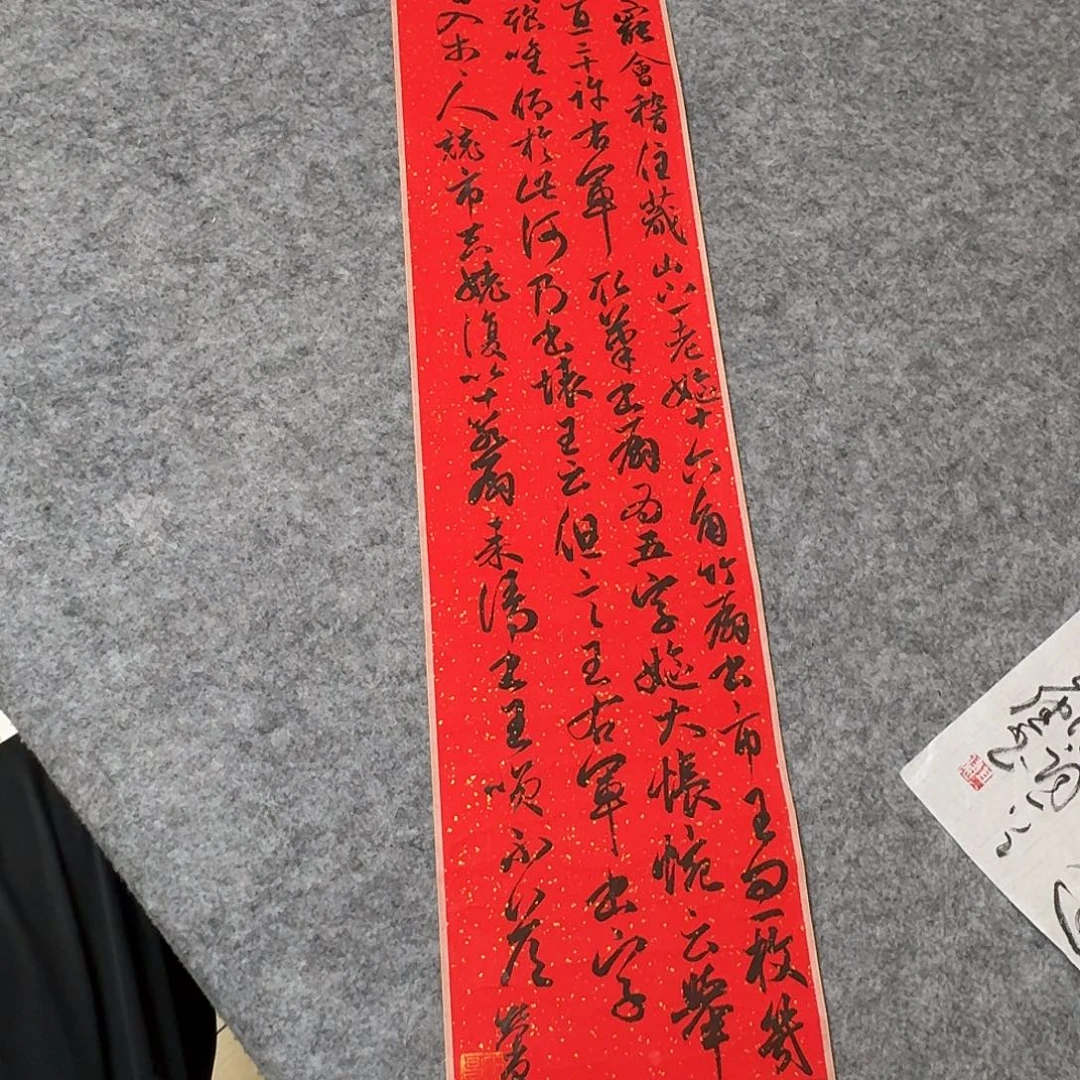 罷會稽住蕺山下一老嫗十六角竹扇出市王問一枚幾
直二十許右軍取筆書扇為五字嫗大悵惋云舉
唯仰於此何乃書壞王云但言王右軍書字
入市〻人競市去姥復以十數扇來請書王笑不答